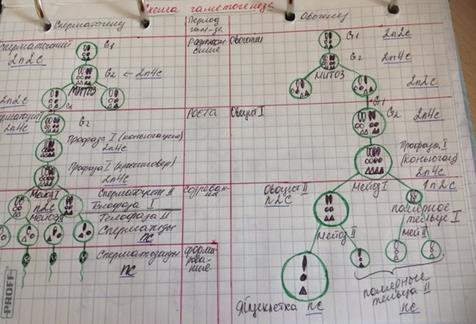 Схема гаметогенеза
Сперматогенез
Период
Овогенез
Сперматогонии
2n2c
G1
G2 ← 2n4c
МИТОЗ
2n2c
Размноже
ния
Овогонии
G1
G2
2n4c
МИТОЗ
2n2c
G2
2n4c
Профаза I (конъюгация)
2n4c
Профаза I (кроссинговер)
2n4c
Роста
Овоцит I
G1
G2
2n4c
Профаза I
(конъюгац)
2n4c
Мейоз I
n2c
Сперматоциты II
Телофаза I
Телофаза II
Сперматиды
nc
Созреван
Овоцит II
n2c
Мейоз I
1n2c
полярное
тельце I
Мейоз II
Мей II
Сперматозоиды
nc
формиро-
вание
Яйцеклетка nc
полярные
тельца II
nc
PROFF